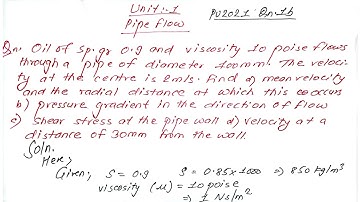 Unit:-1
Pipe flow
PU2021 Qn.1b
Qn: Oil of sp.gr 0.9 and viscosity 10 poise flows
through a pipe of diameter 100mm. The veloci-
ty at the centre is 2m/s. Find a) mean velocity
and the radial distance at which this occurs
b) pressure gradient in the direction of flow
c) shear stress at the pipe wall d) velocity at a
distance of 30mm from the wall.
Soln.
Here,
Given, S = 0.9 S = 0.85 x 1000 => 850 kg/m³
viscosity (μ) = 10 poise
=> 1 Ns/m²